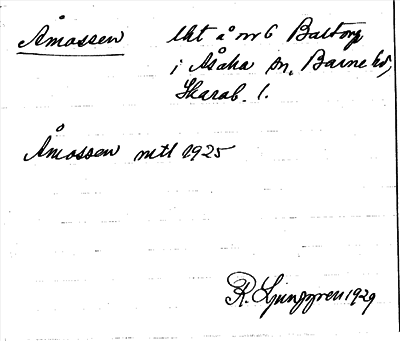 Åmossen
lht å nr 6 Baltorp
i Åsaka sn, Barne hd,
Skarab. l.
Åmossen mtl 1925
R. Ljunggren 1929